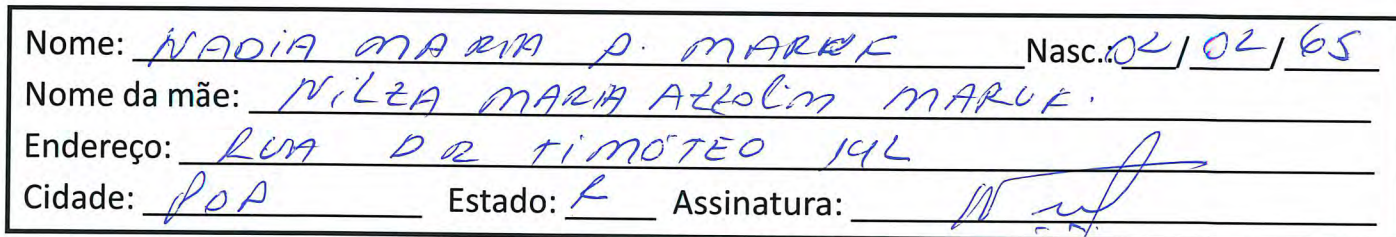 Nome: NADIA MARIA P. MARKF Nasc.: 02/02/65
Nome da mãe: NILZA MARIA AZZOLIM MARUF.
Endereço: RUA DR TIMÓTEO 142
Cidade: POA Estado: R Assinatura: